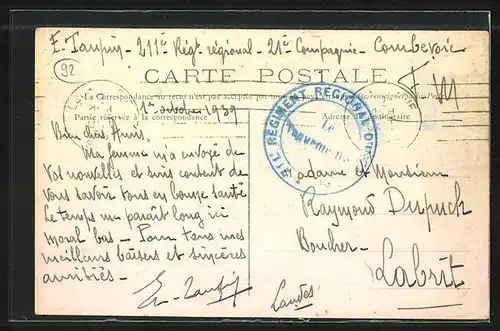 E. Taupin - 211e Régt régional - 21e Compagnie - Courbevoie
92
CARTE POSTALE
F M
La Correspondance au recto n'est pas acceptée par tous
Partie réservée à la correspondance
Adresse du destinataire
211e RÉGIMENT RÉGIONAL
Le
1er octobre 1939
Bien chers Amis,
Ma femme m'a envoyé de
vos nouvelles et suis content de
vous savoir tous en bonne santé
Le temps me paraît long ici
moral bas - Pour tous mes
meilleurs baisers et sincères
amitiés -
E. Taupin
Madame et Monsieur
Raymond Dupuch
Boucher -
Labrit
Landes